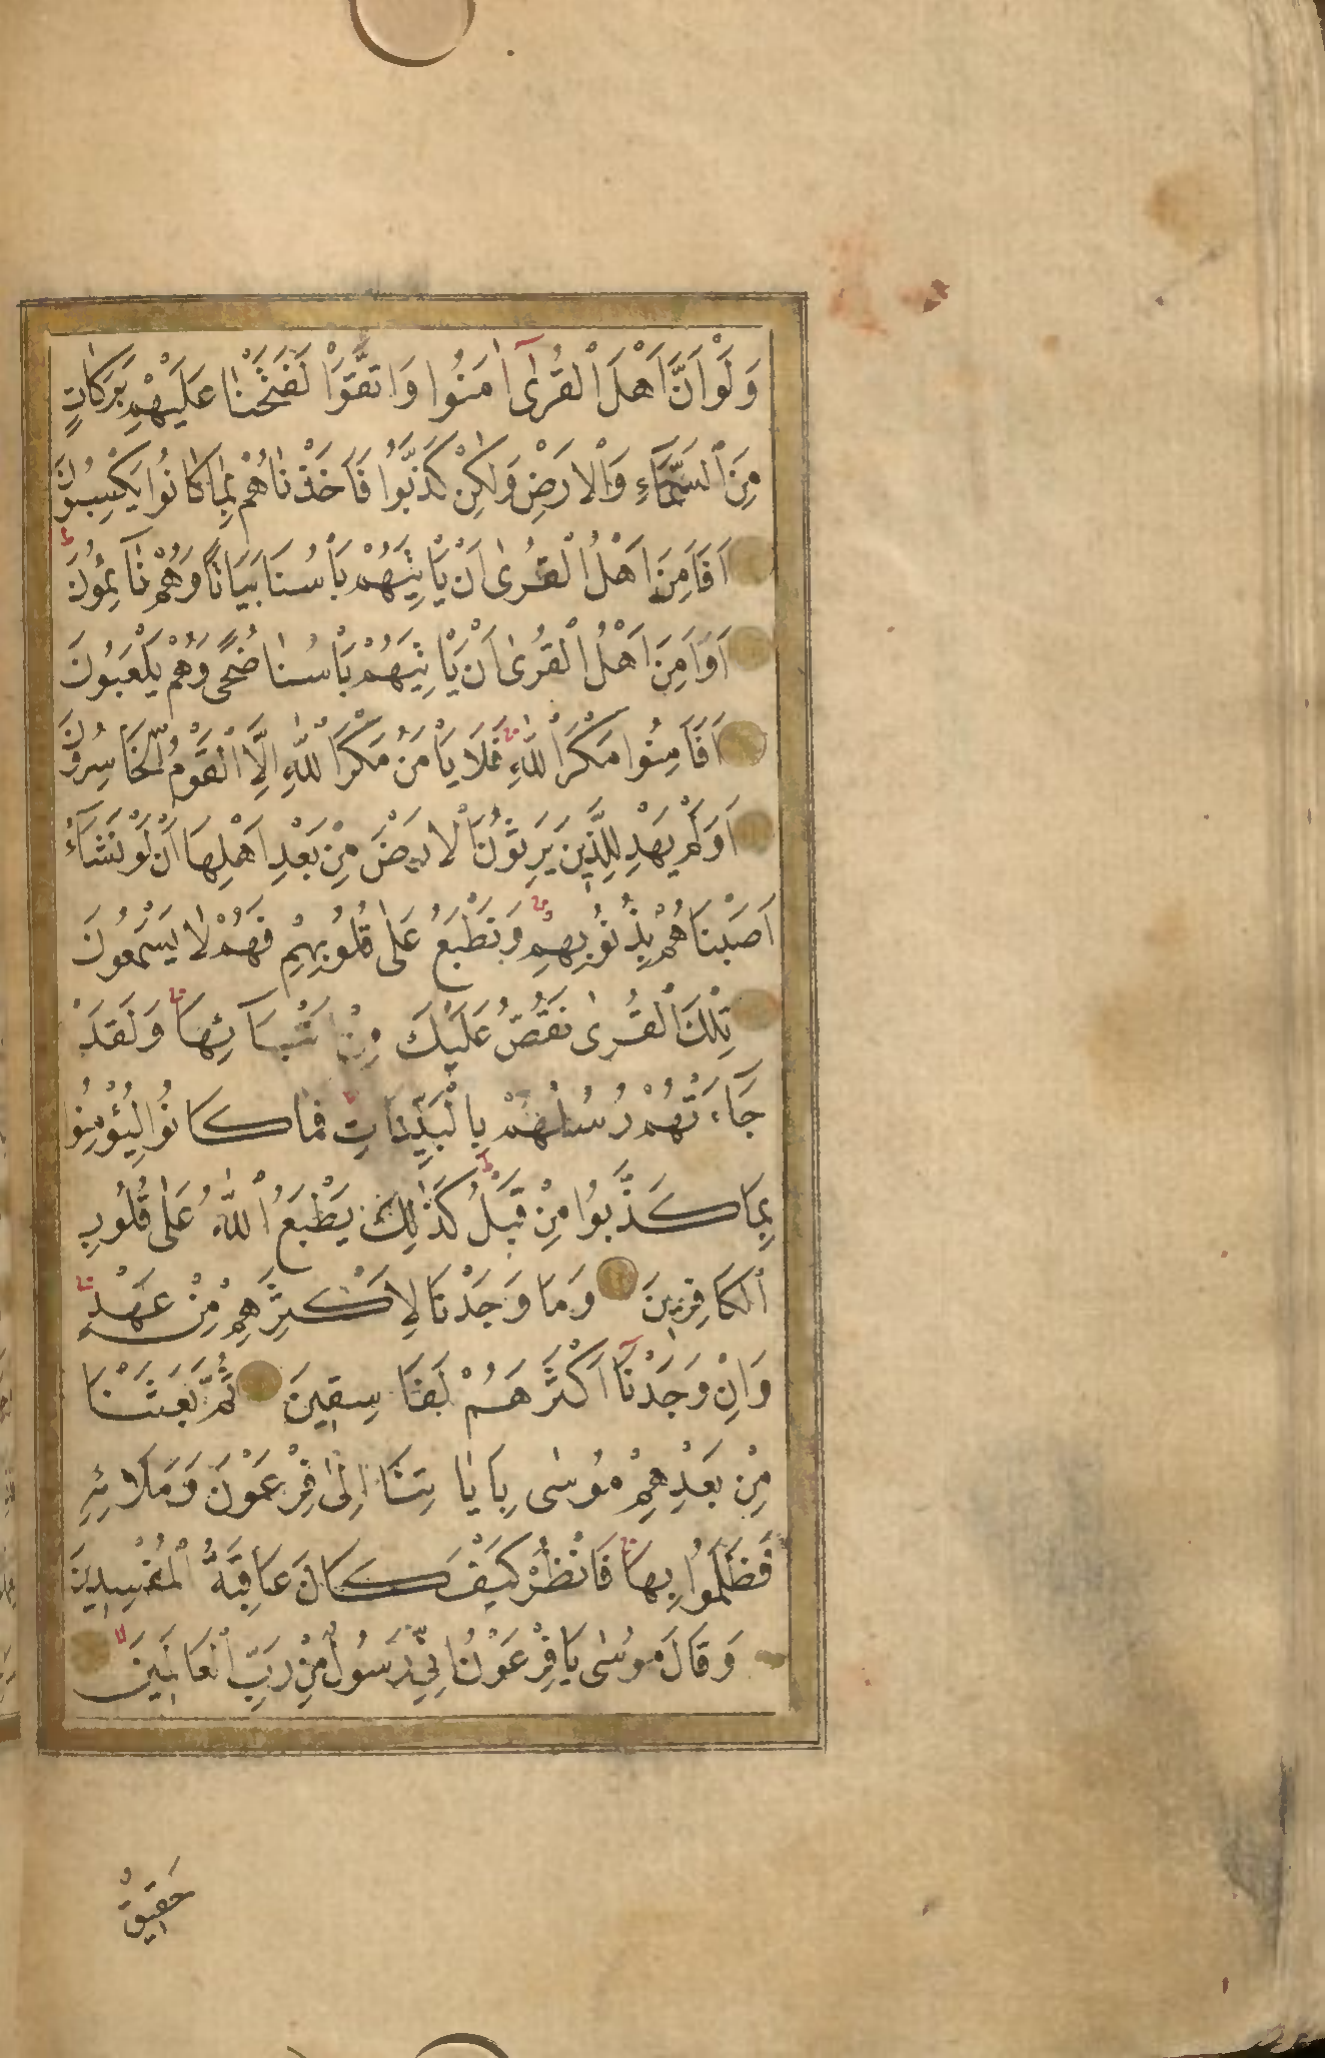 وَلَوْ اَنَّ اَهْلَ الْقُرٰٓى اٰمَنُوا وَاتَّقَوْا لَفَتَحْنَا عَلَيْهِمْ بَرَكَاتٍ
مِنَ السَّمَآءِ وَالْاَرْضِ وَلٰكِنْ كَذَّبُوا فَاَخَذْنَاهُمْ بِمَا كَانُوا يَكْسِبُونَ
اَفَاَمِنَ اَهْلُ الْقُرٰى اَنْ يَاْتِيَهُمْ بَاْسُنَا بَيَاتًا وَهُمْ نَآئِمُونَ ط
اَوَاَمِنَ اَهْلُ الْقُرٰى اَنْ يَاْتِيَهُمْ بَاْسُنَا ضُحًى وَهُمْ يَلْعَبُونَ
اَفَاَمِنُوا مَكْرَ اللّٰهِ فَلَا يَاْمَنُ مَكْرَ اللّٰهِ اِلَّا الْقَوْمُ الْخَاسِرُونَ
اَوَلَمْ يَهْدِ لِلَّذِينَ يَرِثُونَ الْاَرْضَ مِنْ بَعْدِ اَهْلِهَا اَنْ لَوْ نَشَآءُ
اَصَبْنَاهُمْ بِذُنُوبِهِمْ وَنَطْبَعُ عَلٰى قُلُوبِهِمْ فَهُمْ لَا يَسْمَعُونَ
تِلْكَ الْقُرٰى نَقُصُّ عَلَيْكَ مِنْ اَنْبَآئِهَا وَلَقَدْ
جَآءَتْهُمْ رُسُلُهُمْ بِالْبَيِّنَاتِ فَمَا كَانُوا لِيُؤْمِنُوا
بِمَا كَذَّبُوا مِنْ قَبْلُ ط كَذٰلِكَ يَطْبَعُ اللّٰهُ عَلٰى قُلُوبِ
الْكَافِرِينَ وَمَا وَجَدْنَا لِاَكْثَرِهِمْ مِنْ عَهْدٍ
وَاِنْ وَجَدْنَآ اَكْثَرَهُمْ لَفَاسِقِينَ ثُمَّ بَعَثْنَا
مِنْ بَعْدِهِمْ مُوسٰى بِاٰيَاتِنَا اِلٰى فِرْعَوْنَ وَمَلَائِهِ
فَظَلَمُوا بِهَا فَانْظُرْ كَيْفَ كَانَ عَاقِبَةُ الْمُفْسِدِينَ
وَقَالَ مُوسٰى يَا فِرْعَوْنُ اِنِّي رَسُولٌ مِنْ رَبِّ الْعَالَمِينَ لا
حَقِيقٌ